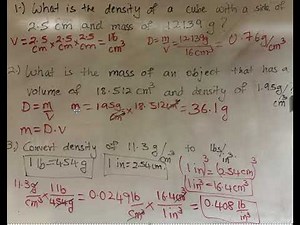 1.) What is the density of a cube with a side of
2.5 cm and mass of 12.139 g?
V = 2.5 cm × 2.5 cm × 2.5 cm = 16 cm³ D = m/V = 12.139g/16cm³ = 0.76g/cm³
2.) What is the mass of an object that has a
volume of 18.512 cm³ and density of 1.95g/cm³
D = m/V m = 1.95g/cm³ × 18.512cm³ = 36.1g
m = D·V
3.) Convert density of 11.3 g/cm³ to lbs/in³
1 lb = 454 g 1 in = 2.54 cm 1³in³ = (2.54)³cm³
1in³ = 16.4cm³
11.3g/cm³ × 1lb/454g = 0.0249 lb/cm³ × 16.4cm³/1in³ = 0.408 lb/in³